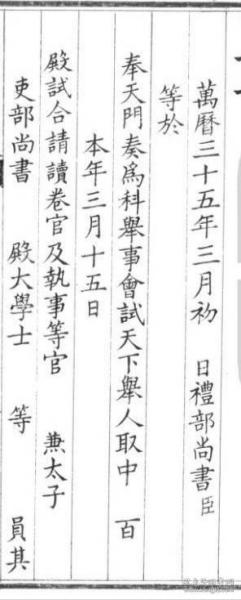 萬曆三十五年三月初　日禮部尚書臣
等於
奉天門奏爲科舉事會試天下舉人取中　百
本年三月十五日
殿試合請讀卷官及執事等官　兼太子
吏部尚書　殿大學士　等　員其